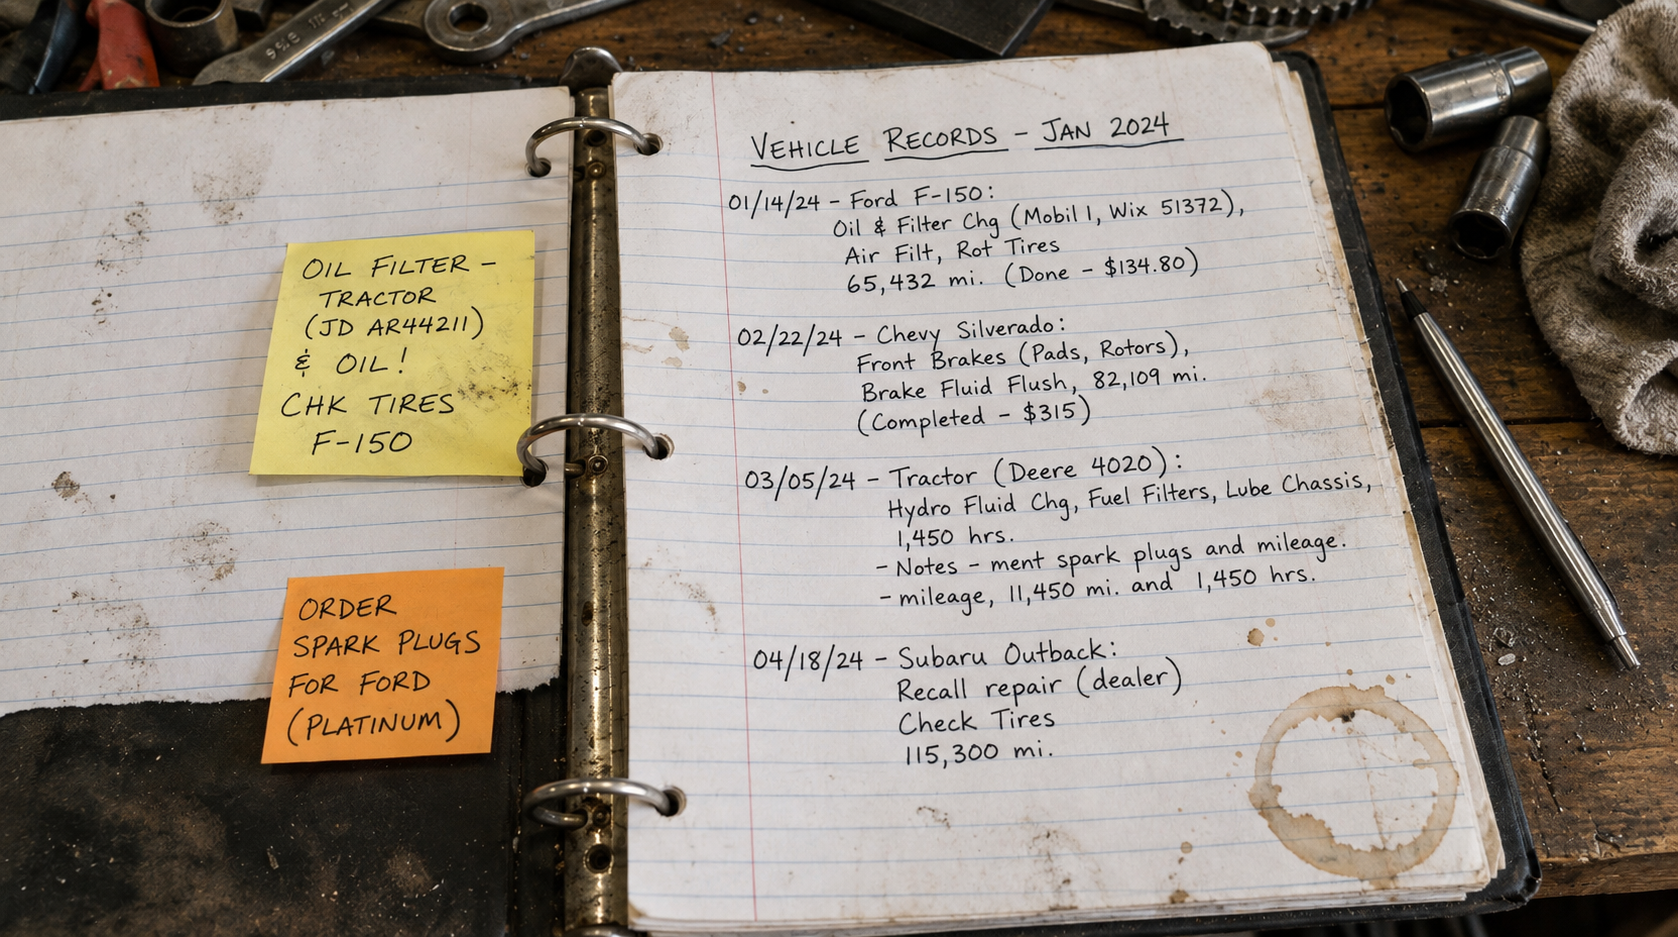 OIL FILTER –
TRACTOR
(JD AR44211)
& OIL!
CHK TIRES
F-150
ORDER
SPARK PLUGS
FOR FORD
(PLATINUM)
VEHICLE RECORDS – JAN 2024
01/14/24 – Ford F-150:
Oil & Filter Chg (Mobil 1, Wix 51372),
Air Filt, Rot Tires
65,432 mi. (Done – $134.80)
02/22/24 – Chevy Silverado:
Front Brakes (Pads, Rotors),
Brake Fluid Flush, 82,109 mi.
(Completed – $315)
03/05/24 – Tractor (Deere 4020):
Hydro Fluid Chg, Fuel Filters, Lube Chassis,
1,450 hrs.
- Notes - ment spark plugs and mileage.
- mileage, 11,450 mi. and 1,450 hrs.
04/18/24 – Subaru Outback:
Recall repair (dealer)
Check Tires
115,300 mi.